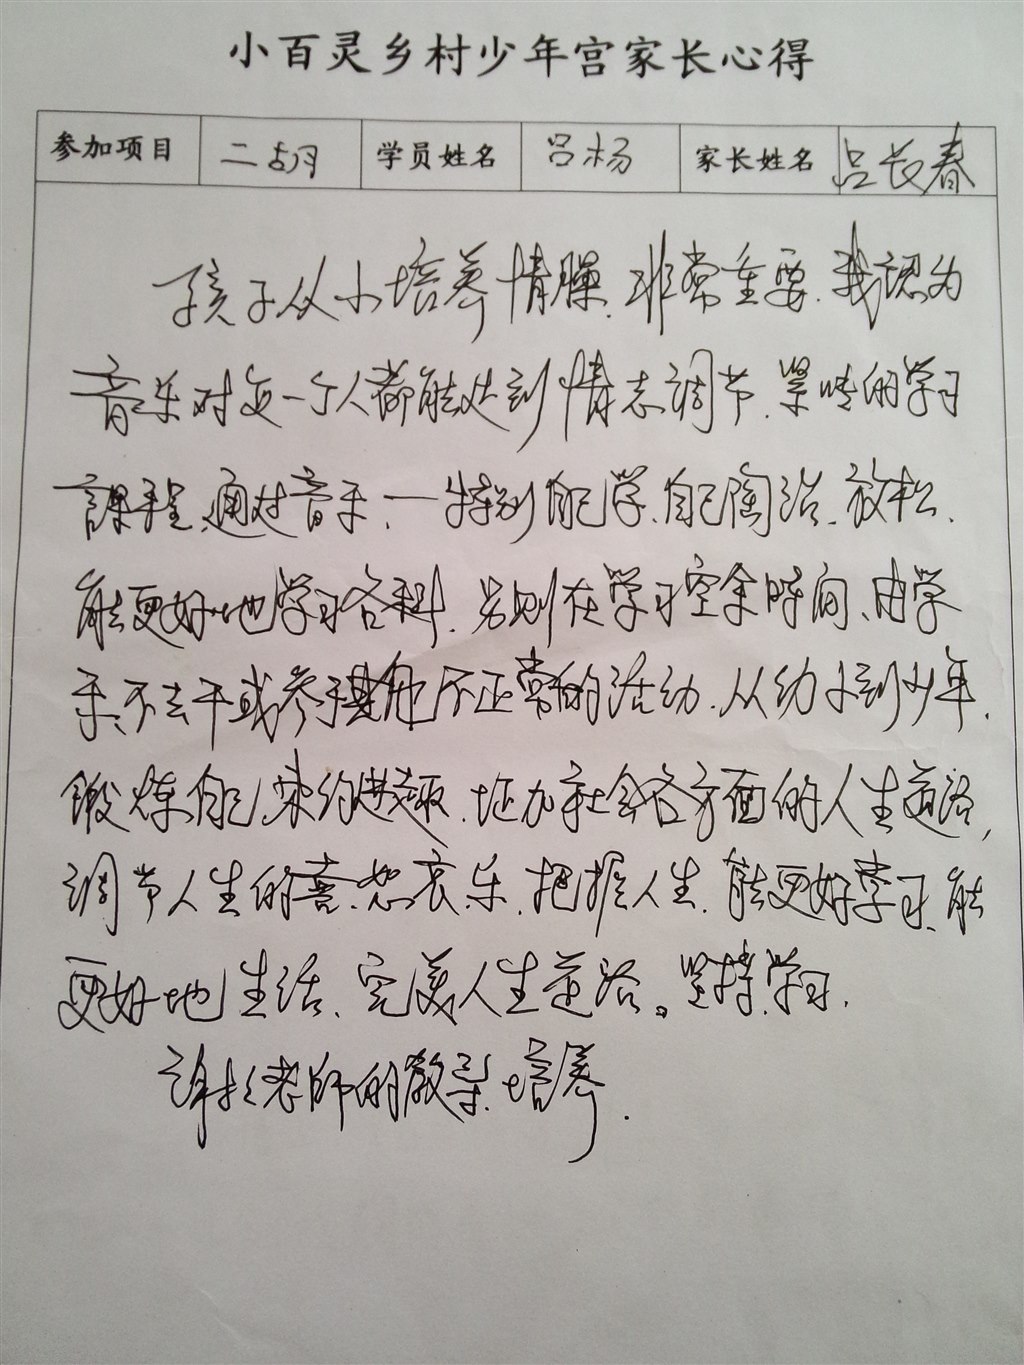 小百灵乡村少年宫家长心得
参加项目 二胡 学员姓名 吕杨 家长姓名 吕长春
孩子从小培养情操,非常重要.我认为
音乐对每一个人都能达到情志调节.紧张的学习
课程、通过音乐、一特别自己学、自己陶冶、放松、
能更好地学习各科.否则在学习空余时间、由学
乐、不去干或参予其他不正常的活动.从幼小到少年.
锻炼自己、业约进趣.增加社会各方面的人生道路,
调节人生的喜、怒、哀、乐.把握人生.能更好学习、能
更好地生活、完美人生道路。坚持学习.
谢谢老师的教导、培养.